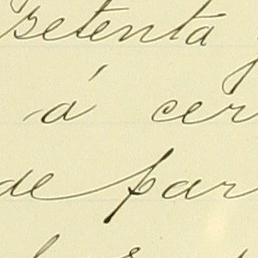 setenta
á cer
de par